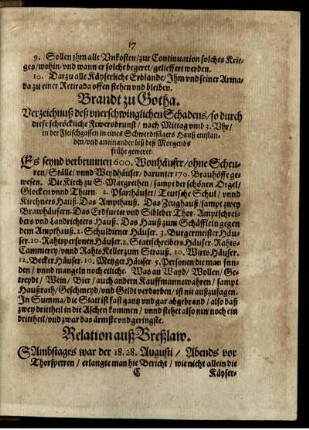 17
9. Sollen jhm alle Vnkosten / zur Continuation solches Krie-
ges / wohin / vnd wann er solche begeret / geliefert werden.
10. Darzu alle Käyserliche Erblande / Jhm vnd seiner Arma-
da zu einer Retirada offen stehen vnd bleiben.
Brandt zu Gotha.
Verzeichnuß deß vnerschwinglichen Schadens / so durch
diese schröckliche Fewersbrunst / nach Mittag vmb 1. Vhr /
in der Fleischgassen in eines Schwerdtfägers Hauß entstan-
den / vnd aneinander biß deß Morgends
frühe geweret.
Es seynd verbrunnen 600. Wonhäuser / ohne Scheu-
ren / Ställe / vnnd Weydhäuser / darunter 170. Brauhöffe ge-
wesen. Die Kirch zu S. Margrethen / sampt der schönen Orgel /
Glocken vnnd Thurn. 2. Pfarrhäuser / Teutsche Schul / vnnd
Kirchners Hauß. Das Ampthauß. Das Zeughauß / sampt zwey
Brawhäusern Das Erdfurter vnd Sibleber Thor. Amptschrei-
bers vnd Landrichters Hauß. Das Hauß zum Schäfflein gegen
dem Ampthauß. 2. Schuldiener Häuser. 3. Burgermeister Häu-
ser. 20. Rahtspersonen Häuser. 2. Stattschreibers Häuser. Rahts-
Cammerey vnnd Rahts Keller zum Strauß. 10. Wirts Häuser.
12. Becker Häuser. 10. Metzger Häuser 5. Personen die man fun-
den / vnnd mangeln noch etliche. Was an Wayd / Wollen / Ge-
treydt / Wein / Bier / auch andern Kauffmannswahren / sampt
Haußrath / Geschmeyd / vnd Geldt verdorben / ist nit außzusagen.
In Summa / die Statt ist fast gantz vnd gar abgebrand / also daß
zwey drittheil in die Aschen kommen / vnnd stehet also nur noch ein
drittheil / vnd zwar das ärmst vnd geringste.
Relation auß Breßlaw.
SAmbstages war der 18. 28. Augusti / Abends vor
Thorsperren / erlangte man hie Bericht / wie nicht allein die
C Käyser-